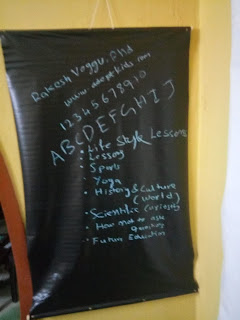 Rakesh Yoggu, Phd
www.adeptkids.com
12345678910
ABCDEFGHIJ
• Life Style Lessons
• Lessons
• Sports
• Yoga
• History & Culture
(World)
• Scientific Curiosity
• How not to ask
• Future Education